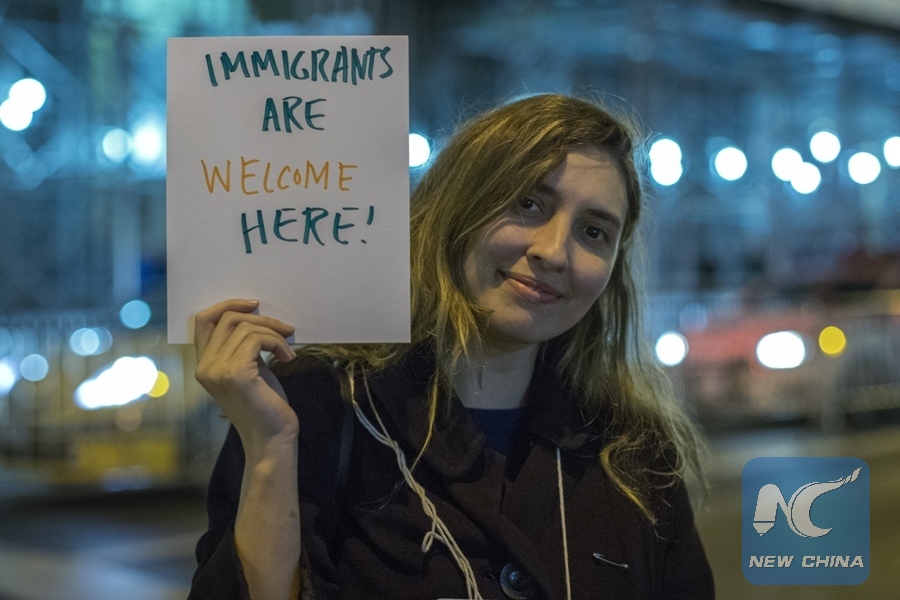 IMMIGRANTS
ARE
WELCOME
HERE!
NC
NEW CHINA